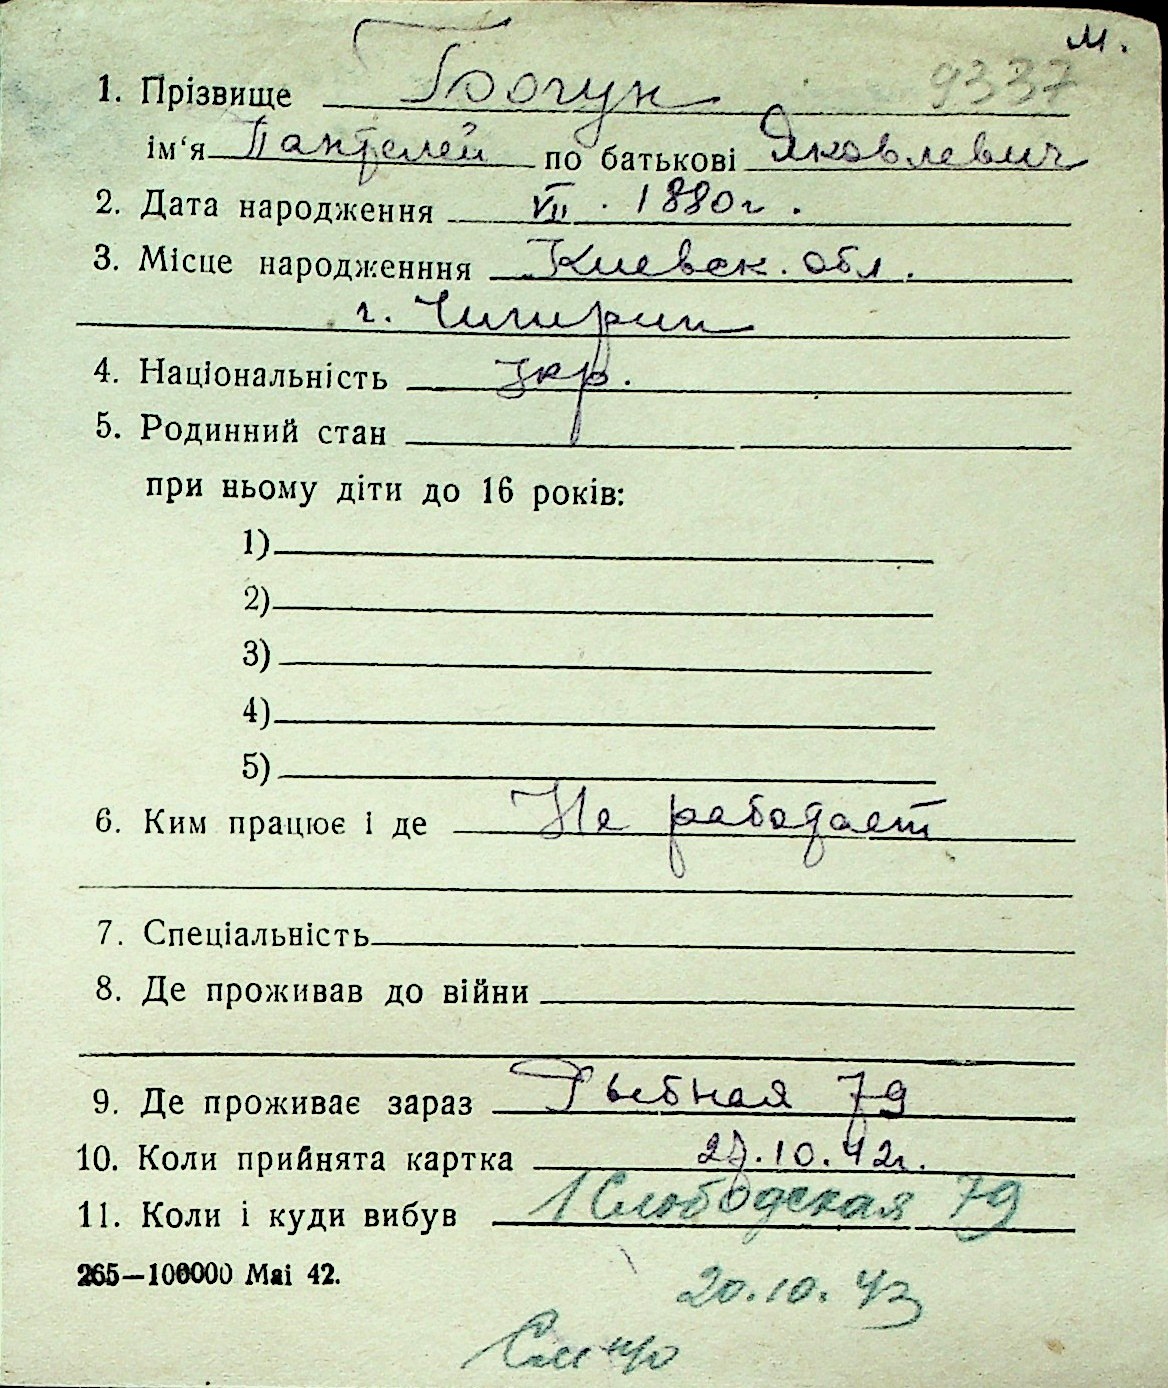 м.
9337
1. Прізвище Богун
ім'я Пантелей по батькові Яковлевич
2. Дата народження VII. 1880г.
3. Місце народженння Киевск. обл.
г. Чигирин
4. Національність укр.
5. Родинний стан
при ньому діти до 16 років:
1)
2)
3)
4)
5)
6. Ким працює і де Не работает
7. Спеціальність
8. Де проживав до війни
9. Де проживає зараз Рыбная 79
10. Коли прийнята картка 27.10.42г.
11. Коли і куди вибув 1 Слободская 79
265—100000 Mai 42.
20.10.43